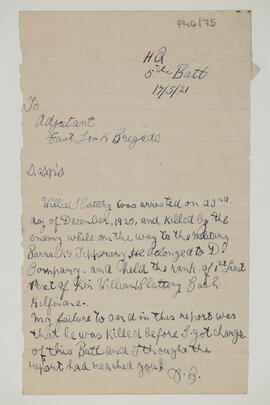 P46/75
HQ
5th Batt
17/5/21
To
Adjutant
East Limk Brigade
Willie Slattery was arrested on 23rd
day of December, 1920, and killed by the
enemy while on the way to the military
Barracks Tipperary. He belonged to D.
Company. and held the rank of 1st Lieut
Next of kin William Slattery Bush
Kilfinane.
My failure to send in this report was
that he was killed before I got charge
of this Batt and I thought the
report had reached you.